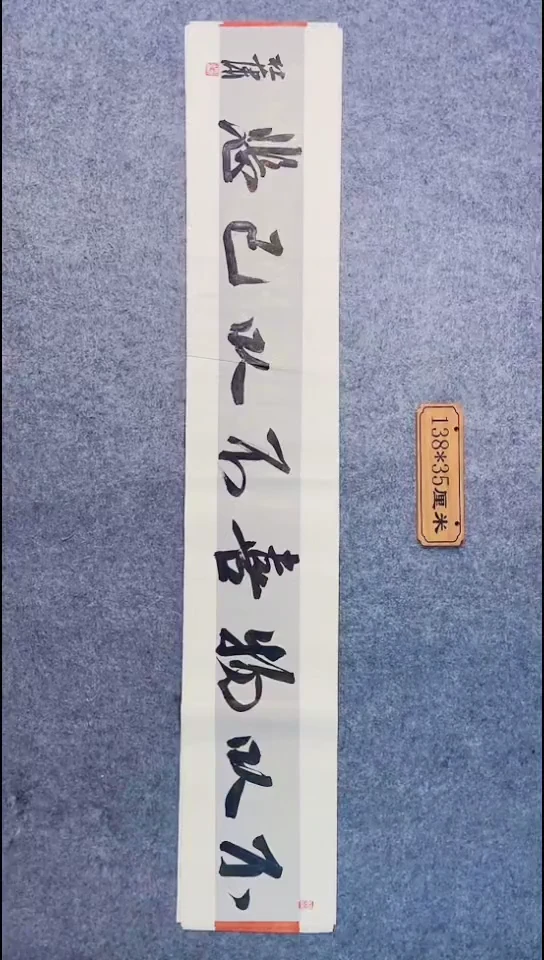 不以物喜不以己悲
138*35厘米